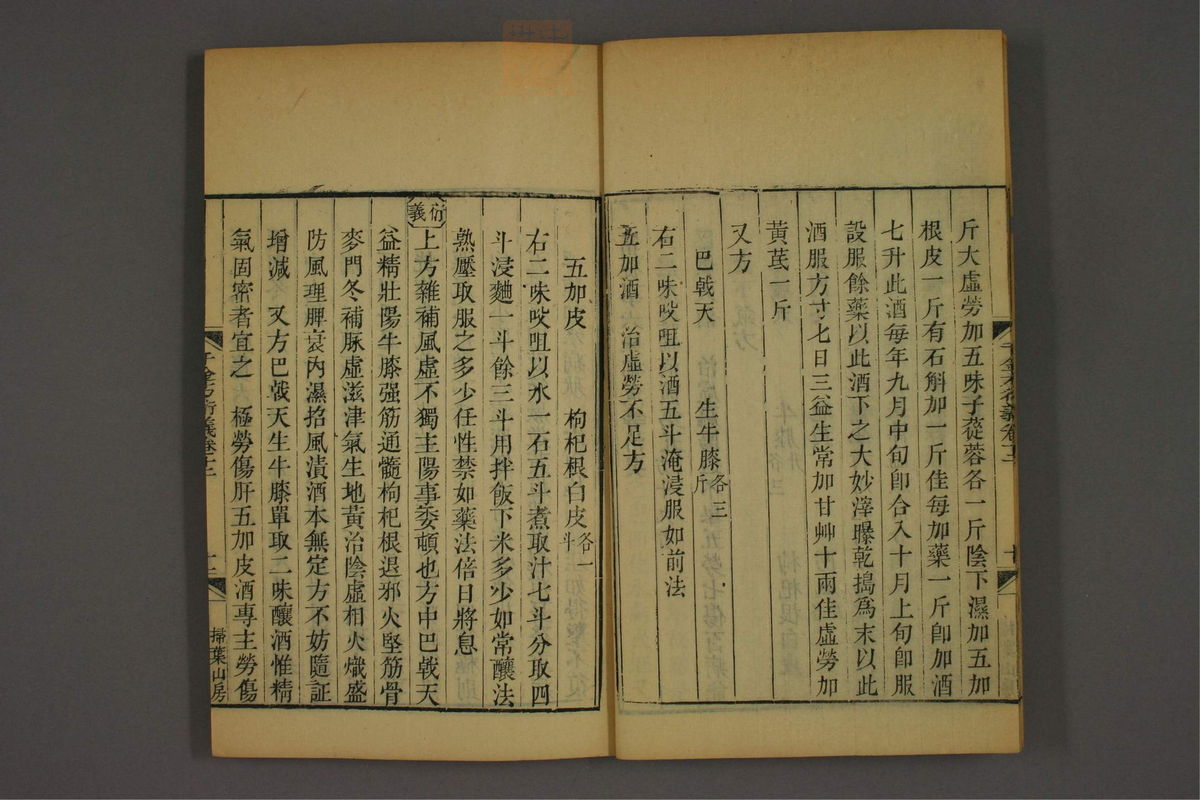 斤大虛勞加五味子蓯蓉各一斤陰下濕加五加
根皮一斤有石斛加一斤佳每加藥一斤卽加酒
七升此酒每年九月中旬卽合入十月上旬卽服
設服餘藥以此酒下之大妙滓曝乾搗爲末以此
酒服方寸匕日三益生常加甘艸十兩佳虛勞加
黃茋一斤
又方
巴戟天 生牛膝各三斤
右二味㕮咀以酒五斗淹浸服如前法
五加酒 治虛勞不足方
五加皮 枸杞根白皮各一斗
右二味㕮咀以水一石五斗煮取汁七斗分取四
斗浸麯一斗餘三斗用拌飯下米多少如常釀法
熟壓取服之多少任性禁如藥法倍日將息
衍義
上方雜補風虛不獨主陽事委頓也方中巴戟天
益精壯陽牛膝强筋通髓枸杞根退邪火堅筋骨
麥門冬補脉虛滋津氣生地黃治陰虛相火熾盛
防風理脾衰內濕招風漬酒本無定方不妨隨証
增減 又方巴戟天生牛膝單取二味釀酒惟精
氣固密者宜之 極勞傷肝五加皮酒專主勞傷
千金方衍義卷十二
掃葉山房